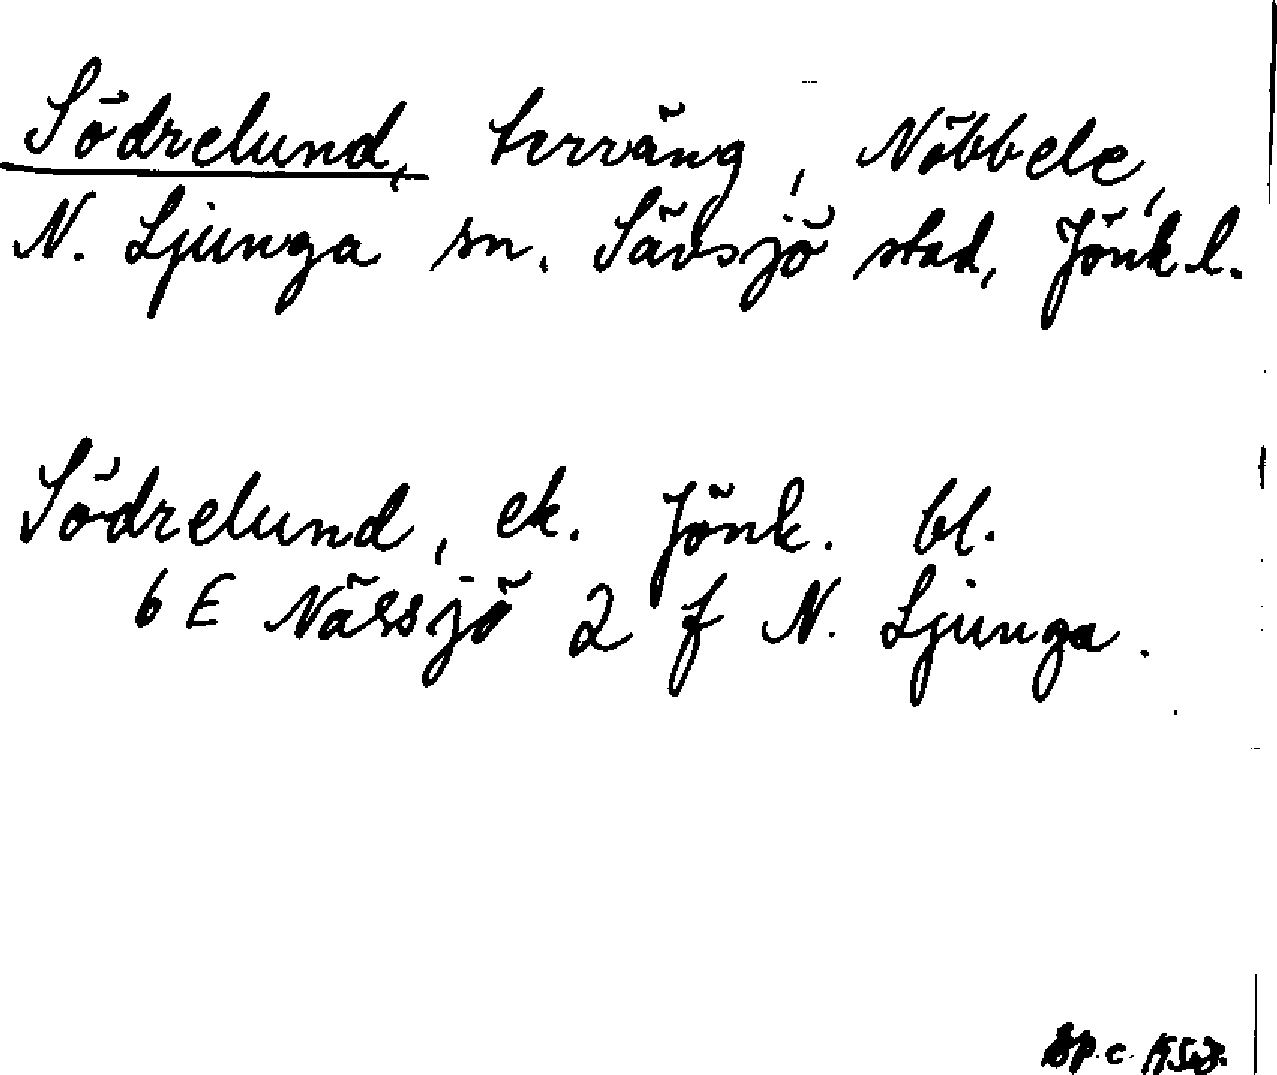 Södrelund, terräng, Nöbbele,
N. Ljunga sn. Sävsjö stad, Jönk l.
Södrelund, ek. Jönk. bl.
6 E Nässjö 2 f N. Ljunga.